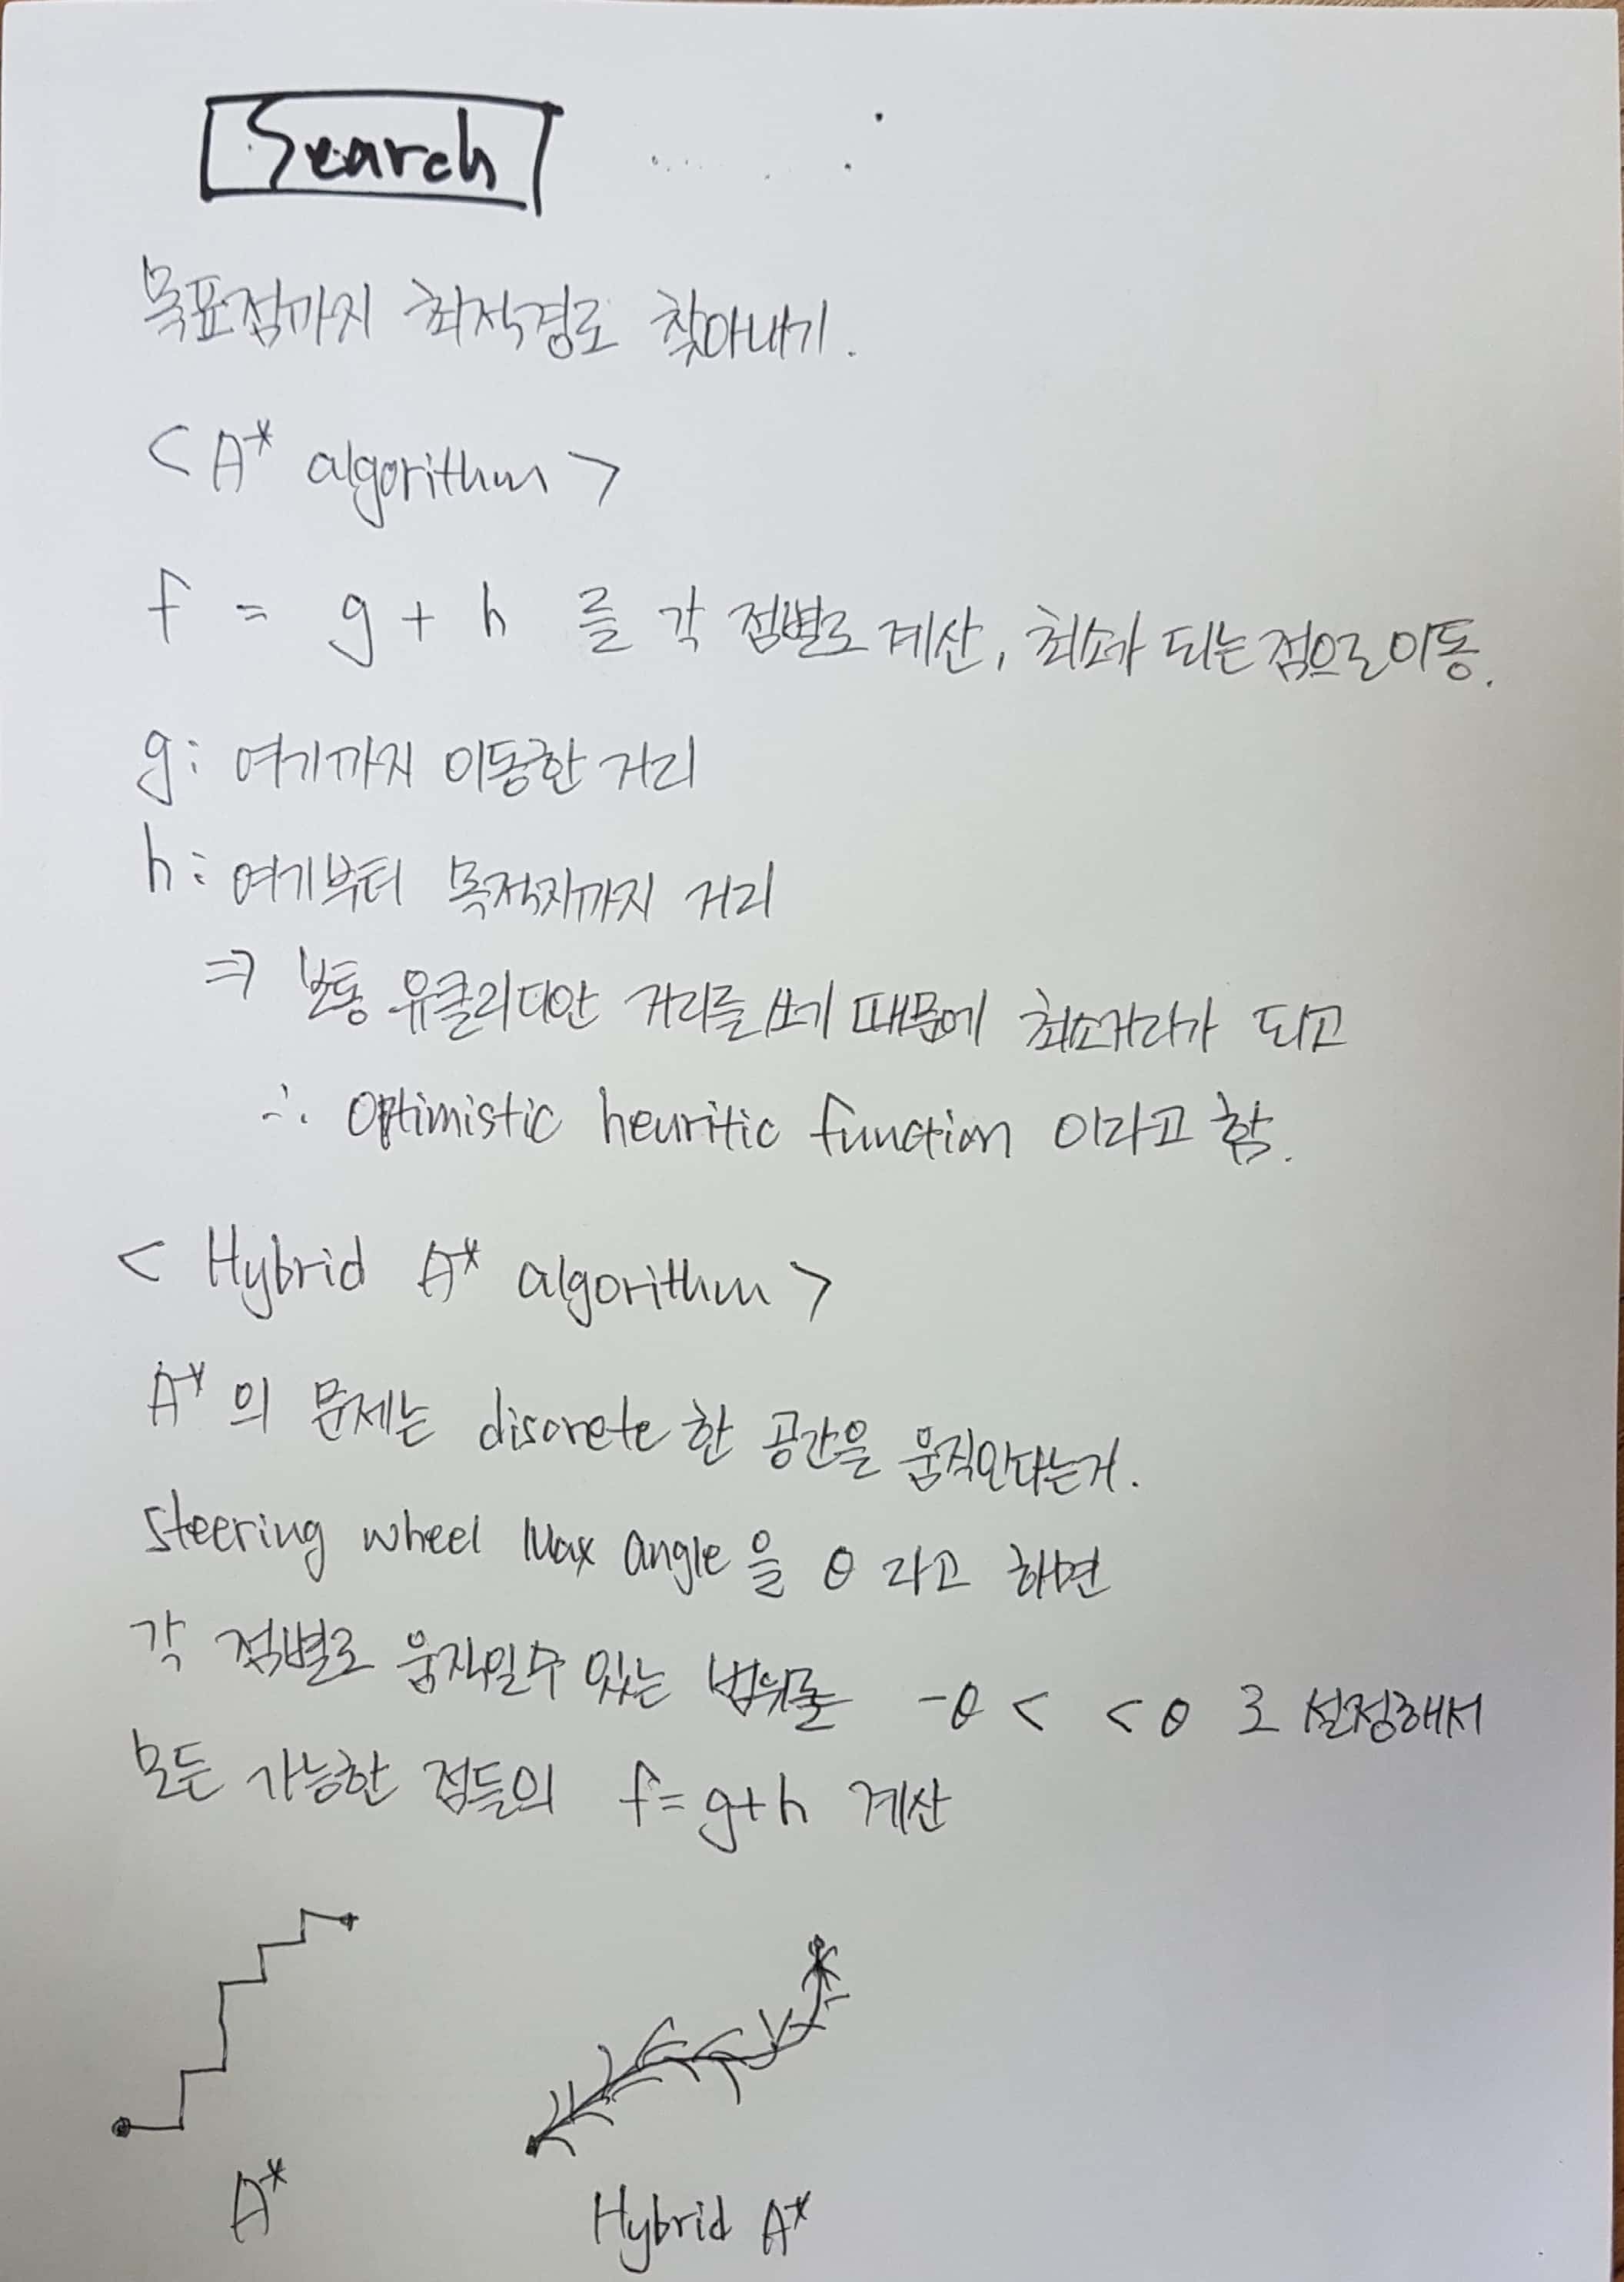 Search
목표점까지 최적경로 찾아내기.
< A* algorithm >
f = g + h 를 각 점별로 계산, 최소가 되는 점으로 이동.
g: 여기까지 이동한 거리
h: 여기부터 목적지까지 거리
⇒ 보통 유클리디안 거리를 쓰기 때문에 최소거리가 되고
∴ optimistic heuritic function 이라고 함.
< Hybrid A* algorithm >
A* 의 문제는 discrete 한 공간을 움직인다는거.
steering wheel Max angle을 θ 라고 하면
각 점별로 움직일수 있는 범위를 -θ < < θ 로 설정해서
모든 가능한 점들의 f=g+h 계산
A* Hybrid A*